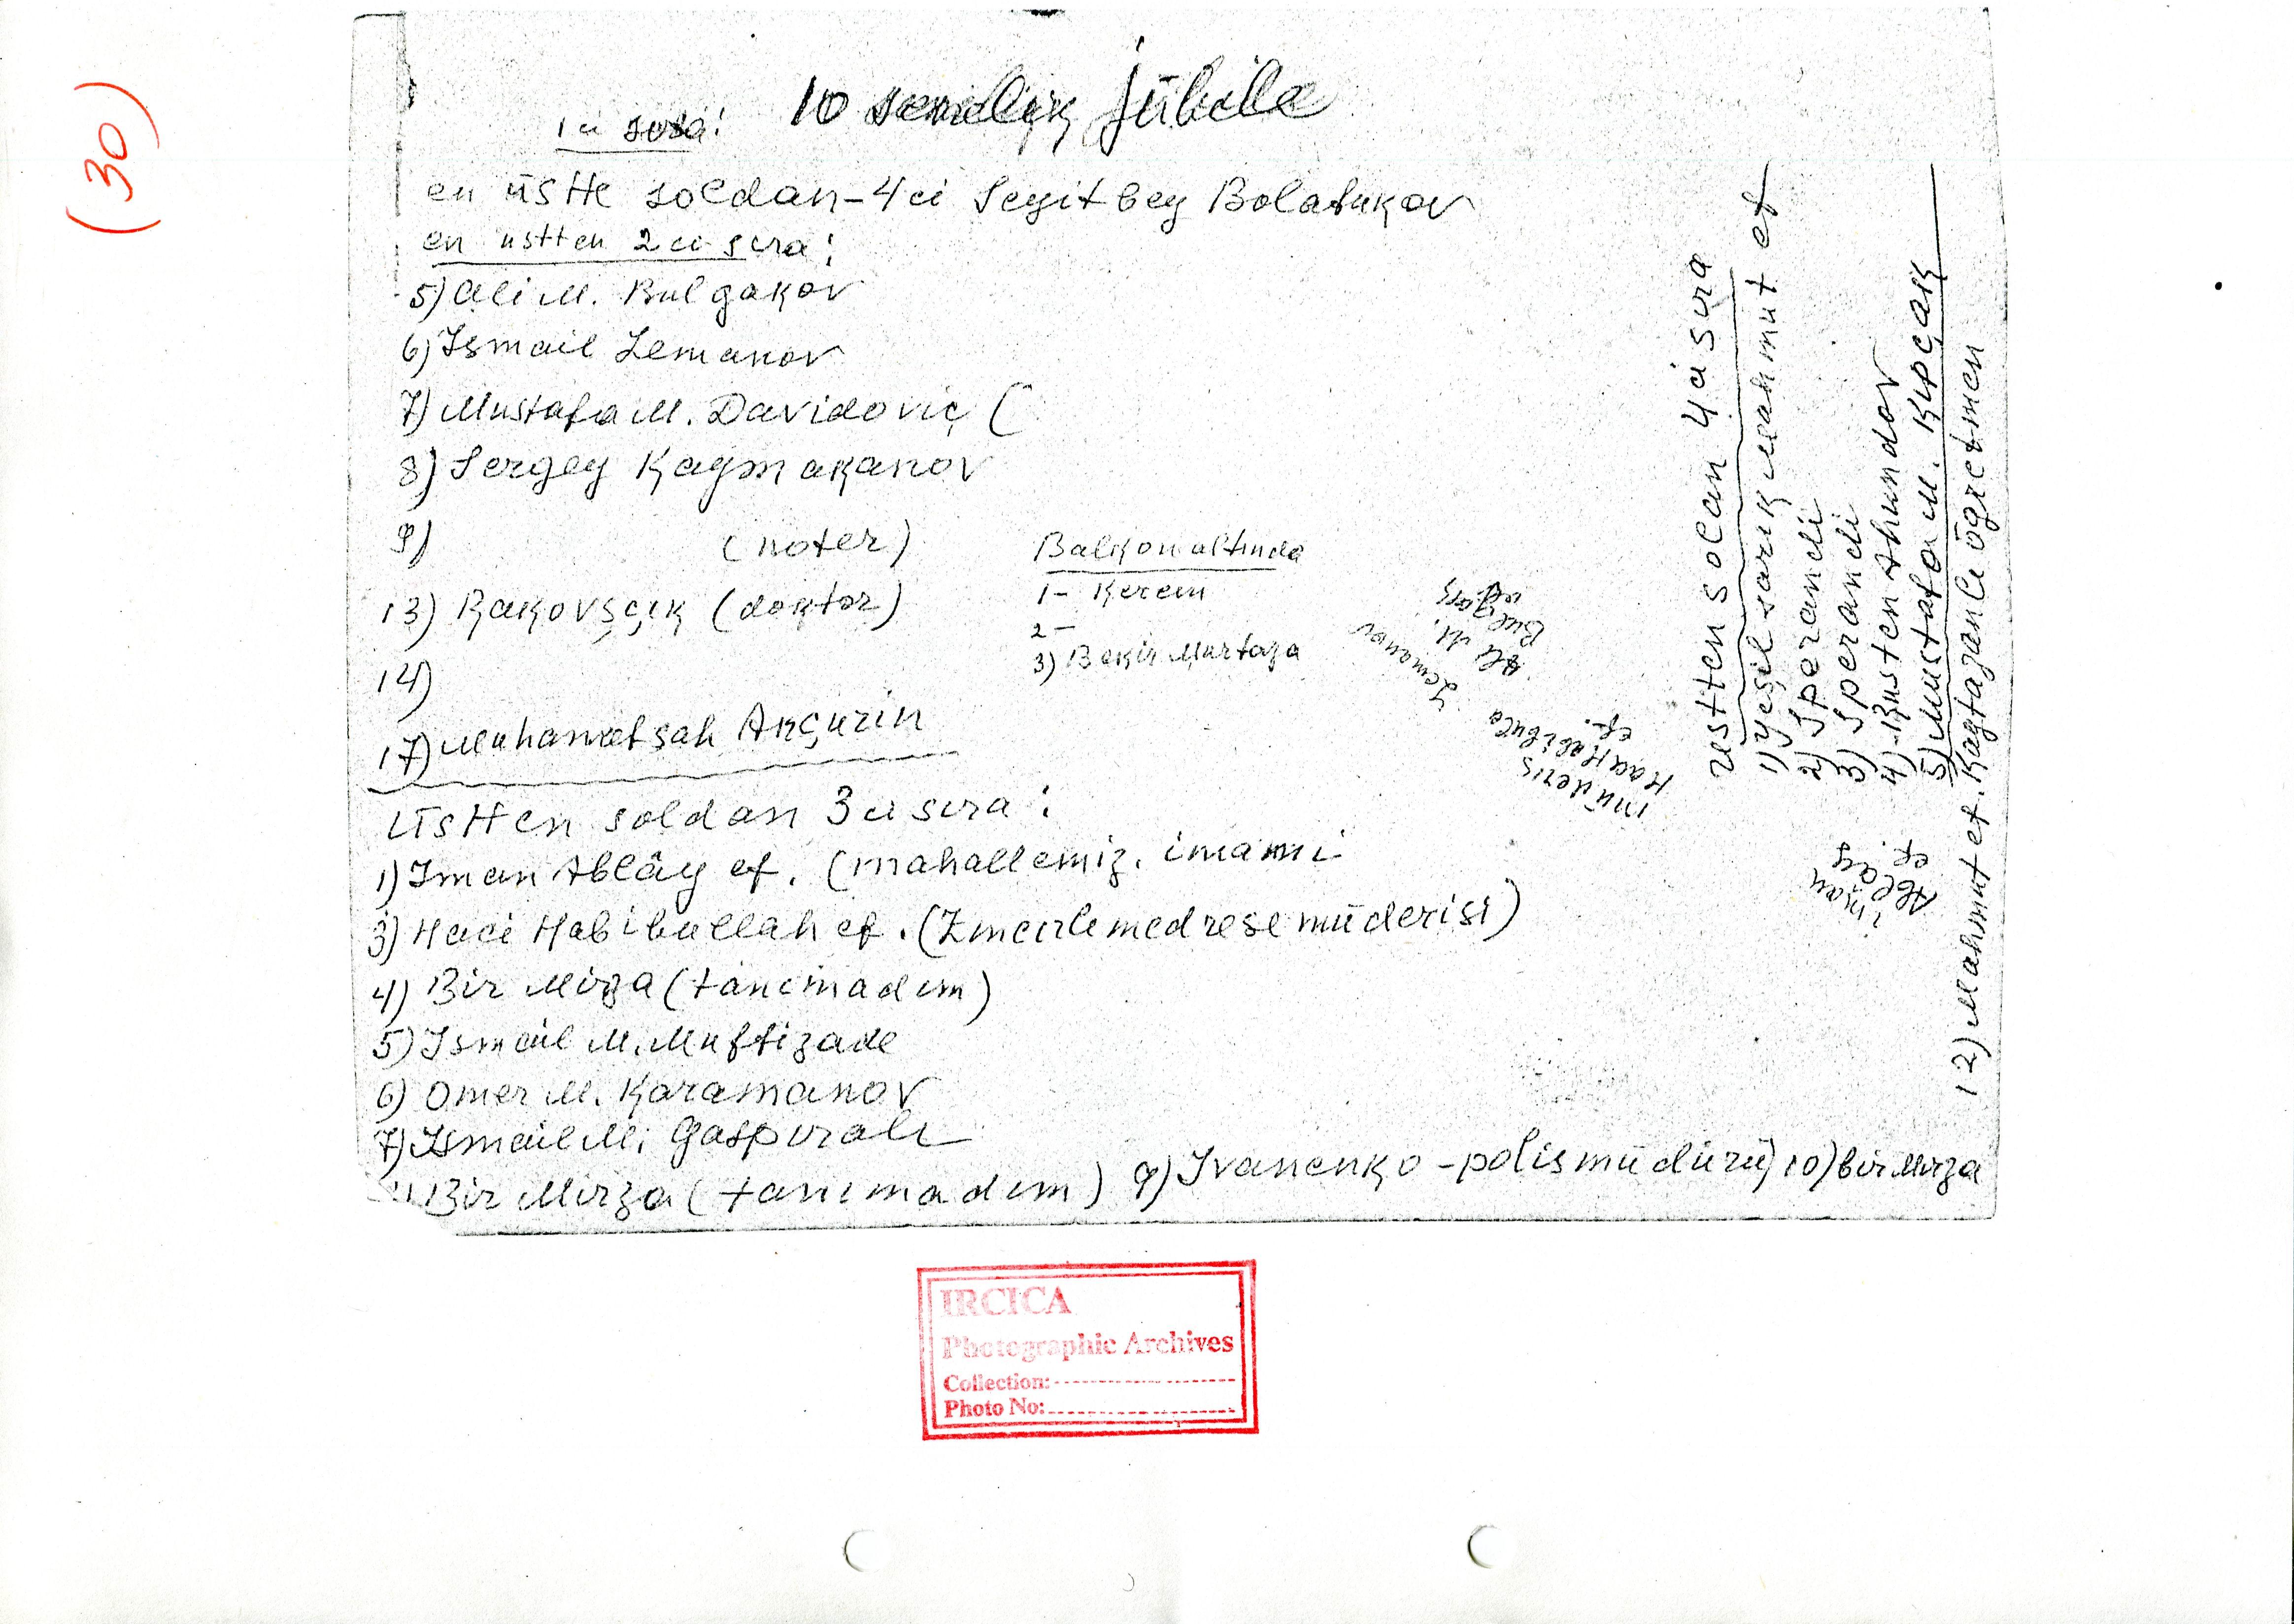 (30)
10 senelik jübile
1 ci sıra:
en üstte soldan-4ci Seyit bey Bolatukov
en üstten 2ci sıra:
5) Ali M. Bulgakov
6) Ismail Lemanov
7) Mustafa M. Davidoviç (
8) Sergey Kaymakanov
9) (noter)
13) Rakovşçık (doktor)
14)
17) Muhametşah Akçurin
Balkon altında
1- Kerem
2-
3) Bekir Murtaza
Üstten soldan 3ci sıra:
1) Iman Ablây ef. (mahallemiz. imamı
3) Haci Habibullah ef. (Zıncırlı medrese müderisi)
4) Bir Mirza (tanımadım)
5) Ismail M. Muftizade
6) Omer M. Karamanov
7) Ismail M. Gaspıralı
Bir Mirza (tanımadım) 9) Ivanenko - polis müdürü) 10) bir Mirza
üstten solan 4ci sıra
1) yeşil sarık Mahmut ef
2) Sperandi
3) Sperandi
4) Rusten Ahundov
5) Mustafa M. Kıpçak
12) Mahmut ef. Kaytazanlı ögretmen
Ali M.
Lemanov
müderis
Hacı Habibula
ef.
iman
Ablay
ef.
IRCICA
Photographic Archives
Collection:
Photo No: